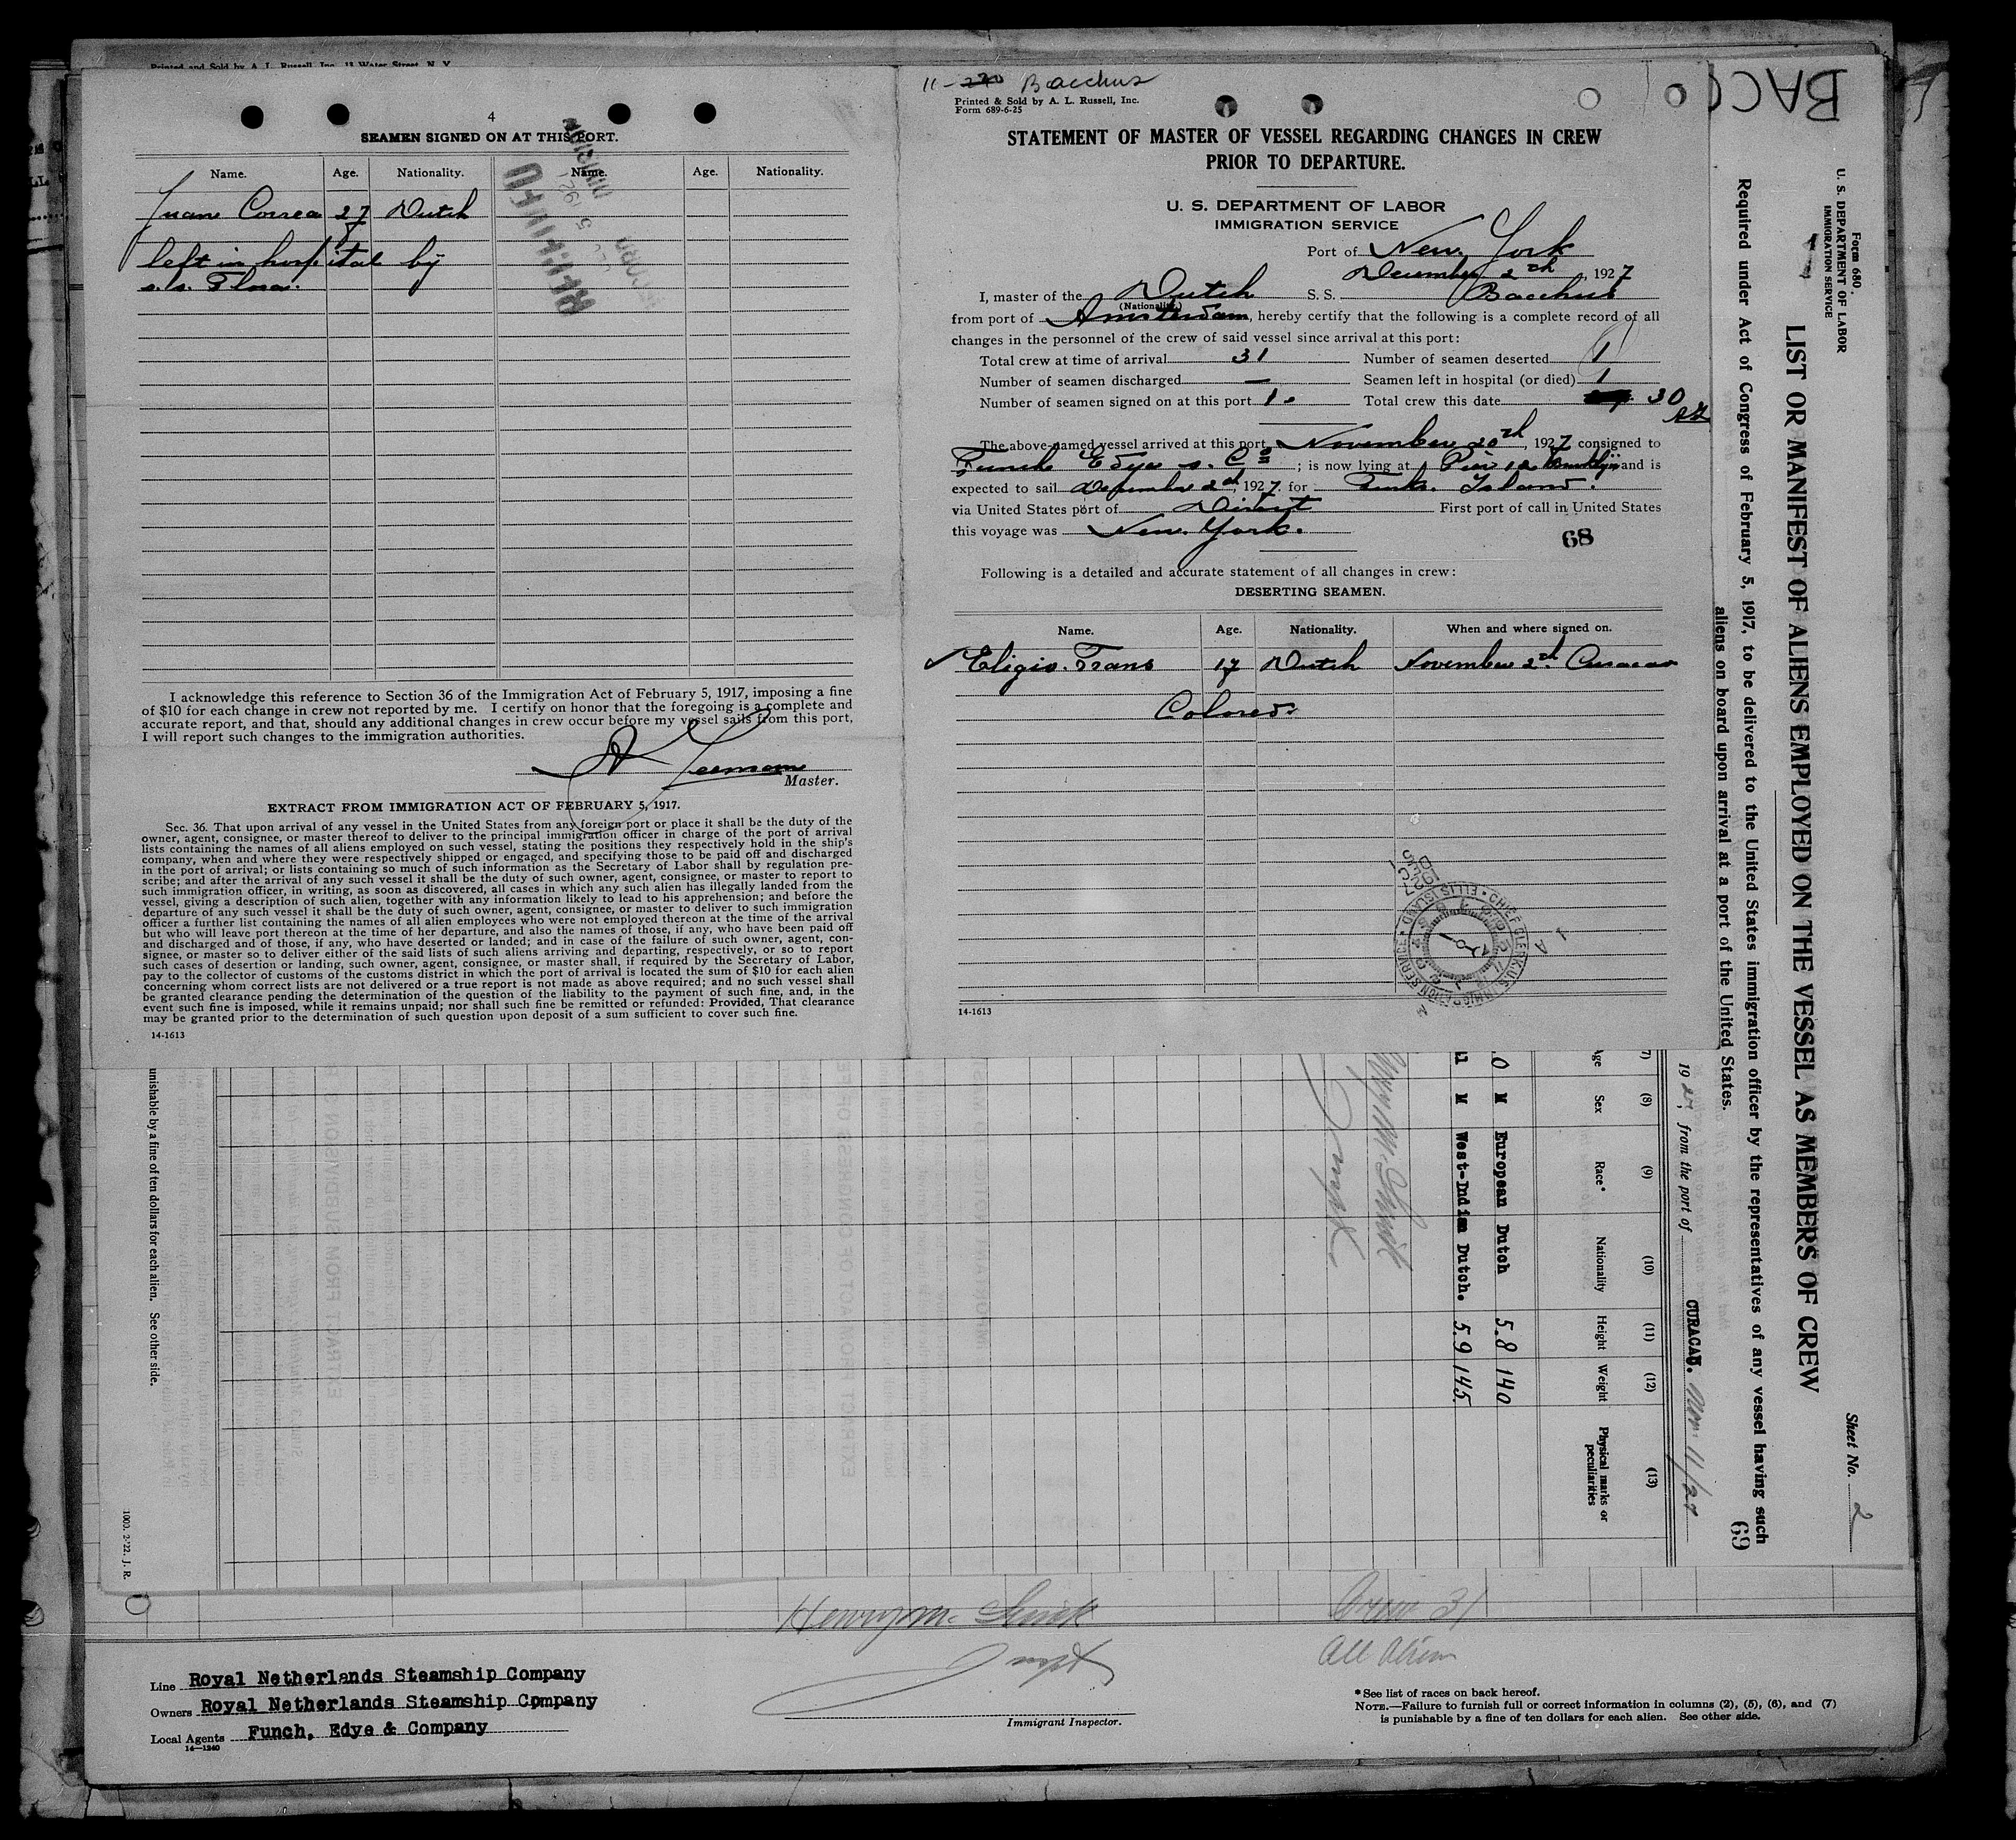 Printed and Sold by A. L. Russell, Inc. 13 Water Street, N. Y.
4
SEAMEN SIGNED ON AT THIS PORT.
Name. Age. Nationality. Name. Age. Nationality.
Juan Correa 27 Dutch
left in hospital by
s.s. Flora.
I acknowledge this reference to Section 36 of the Immigration Act of February 5, 1917, imposing a fine
of $10 for each change in crew not reported by me. I certify on honor that the foregoing is a complete and
accurate report, and that, should any additional changes in crew occur before my vessel sails from this port,
I will report such changes to the immigration authorities.
Master.
EXTRACT FROM IMMIGRATION ACT OF FEBRUARY 5, 1917.
Sec. 36. That upon arrival of any vessel in the United States from any foreign port or place it shall be the duty of the
owner, agent, consignee, or master thereof to deliver to the principal immigration officer in charge of the port of arrival
lists containing the names of all aliens employed on such vessel, stating the positions they respectively hold in the ship's
company, when and where they were respectively shipped or engaged, and specifying those to be paid off and discharged
in the port of arrival; or lists containing so much of such information as the Secretary of Labor shall by regulation pre-
scribe; and after the arrival of any such vessel it shall be the duty of such owner, agent, consignee, or master to report to
such immigration officer, in writing, as soon as discovered, all cases in which any such alien has illegally landed from the
vessel, giving a description of such alien, together with any information likely to lead to his apprehension; and before the
departure of any such vessel it shall be the duty of such owner, agent, consignee, or master to deliver to such immigration
officer a further list containing the names of all alien employees who were not employed thereon at the time of the arrival
but who will leave port thereon at the time of her departure, and also the names of those, if any, who have been paid off
and discharged and of those, if any, who have deserted or landed; and in case of the failure of such owner, agent, con-
signee, or master so to deliver either of the said lists of such aliens arriving and departing, respectively, or so to report
such cases of desertion or landing, such owner, agent, consignee, or master shall, if required by the Secretary of Labor,
pay to the collector of customs of the customs district in which the port of arrival is located the sum of $10 for each alien
concerning whom correct lists are not delivered or a true report is not made as above required; and no such vessel shall
be granted clearance pending the determination of the question of the liability to the payment of such fine, and, in the
event such fine is imposed, while it remains unpaid; nor shall such fine be remitted or refunded: Provided, That clearance
may be granted prior to the determination of such question upon deposit of a sum sufficient to cover such fine.
14-1613
11- Bacchus
Printed & Sold by A. L. Russell, Inc.
Form 689-6-25
STATEMENT OF MASTER OF VESSEL REGARDING CHANGES IN CREW
PRIOR TO DEPARTURE.
U. S. DEPARTMENT OF LABOR
IMMIGRATION SERVICE
Port of New York
December 2th, 1927
I, master of the Dutch S. S. Bacchus
(Nationality)
from port of Amsterdam, hereby certify that the following is a complete record of all
changes in the personnel of the crew of said vessel since arrival at this port:
Total crew at time of arrival 31 Number of seamen deserted 1
Number of seamen discharged — Seamen left in hospital (or died) 1
Number of seamen signed on at this port 1. Total crew this date 30
The above-named vessel arrived at this port November 20th, 1927 consigned to
Funch Edye s. Co; is now lying at Pier 12 Brooklyn and is
expected to sail December 2d, 1927. for Turks Island.
via United States port of Direct First port of call in United States
this voyage was New. York.
68
Following is a detailed and accurate statement of all changes in crew:
DESERTING SEAMEN.
Name. Age. Nationality. When and where signed on.
Eligio. Frans 17 Dutch November 2th Curacao
Colored.
DEC 5 1927
CHIEF CLERK U.S. IMMIGRATION SERVICE ELLIS ISLAND
14-1613
BACC
Form 680
U. S. DEPARTMENT OF LABOR
IMMIGRATION SERVICE
Sheet No. 2
LIST OR MANIFEST OF ALIENS EMPLOYED ON THE VESSEL AS MEMBERS OF CREW
Required under Act of Congress of February 5, 1917, to be delivered to the United States immigration officer by the representatives of any vessel having such
aliens on board upon arrival at a port of the United States.
69
1927, from the port of CURACAO. Nov. 11/27
(8) (9) (10) (11) (12) (13)
Sex Race* Nationality Height Weight Physical marks or peculiarities
M European Dutch 5.8 140
M West-Indian Dutch. 5.9 145.
unishable by a fine of ten dollars for each alien. See other side.
1000. 2-'22. J. R.
Crew 31
All Alien
Line Royal Netherlands Steamship Company
Owners Royal Netherlands Steamship Company
Local Agents Funch, Edye & Company
14—1240
Immigrant Inspector.
* See list of races on back hereof.
NOTE.—Failure to furnish full or correct information in columns (2), (5), (6), and (7)
is punishable by a fine of ten dollars for each alien. See other side.